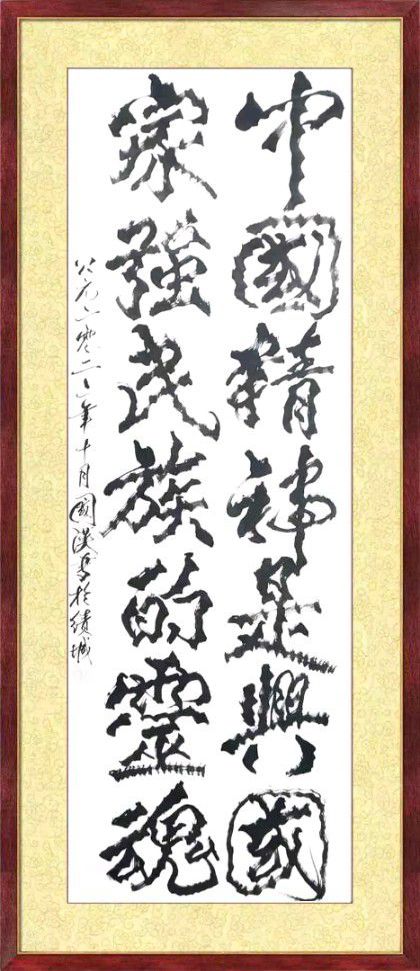 中國精神是興國
家強民族的靈魂
公元二零二年十月國漢於績城